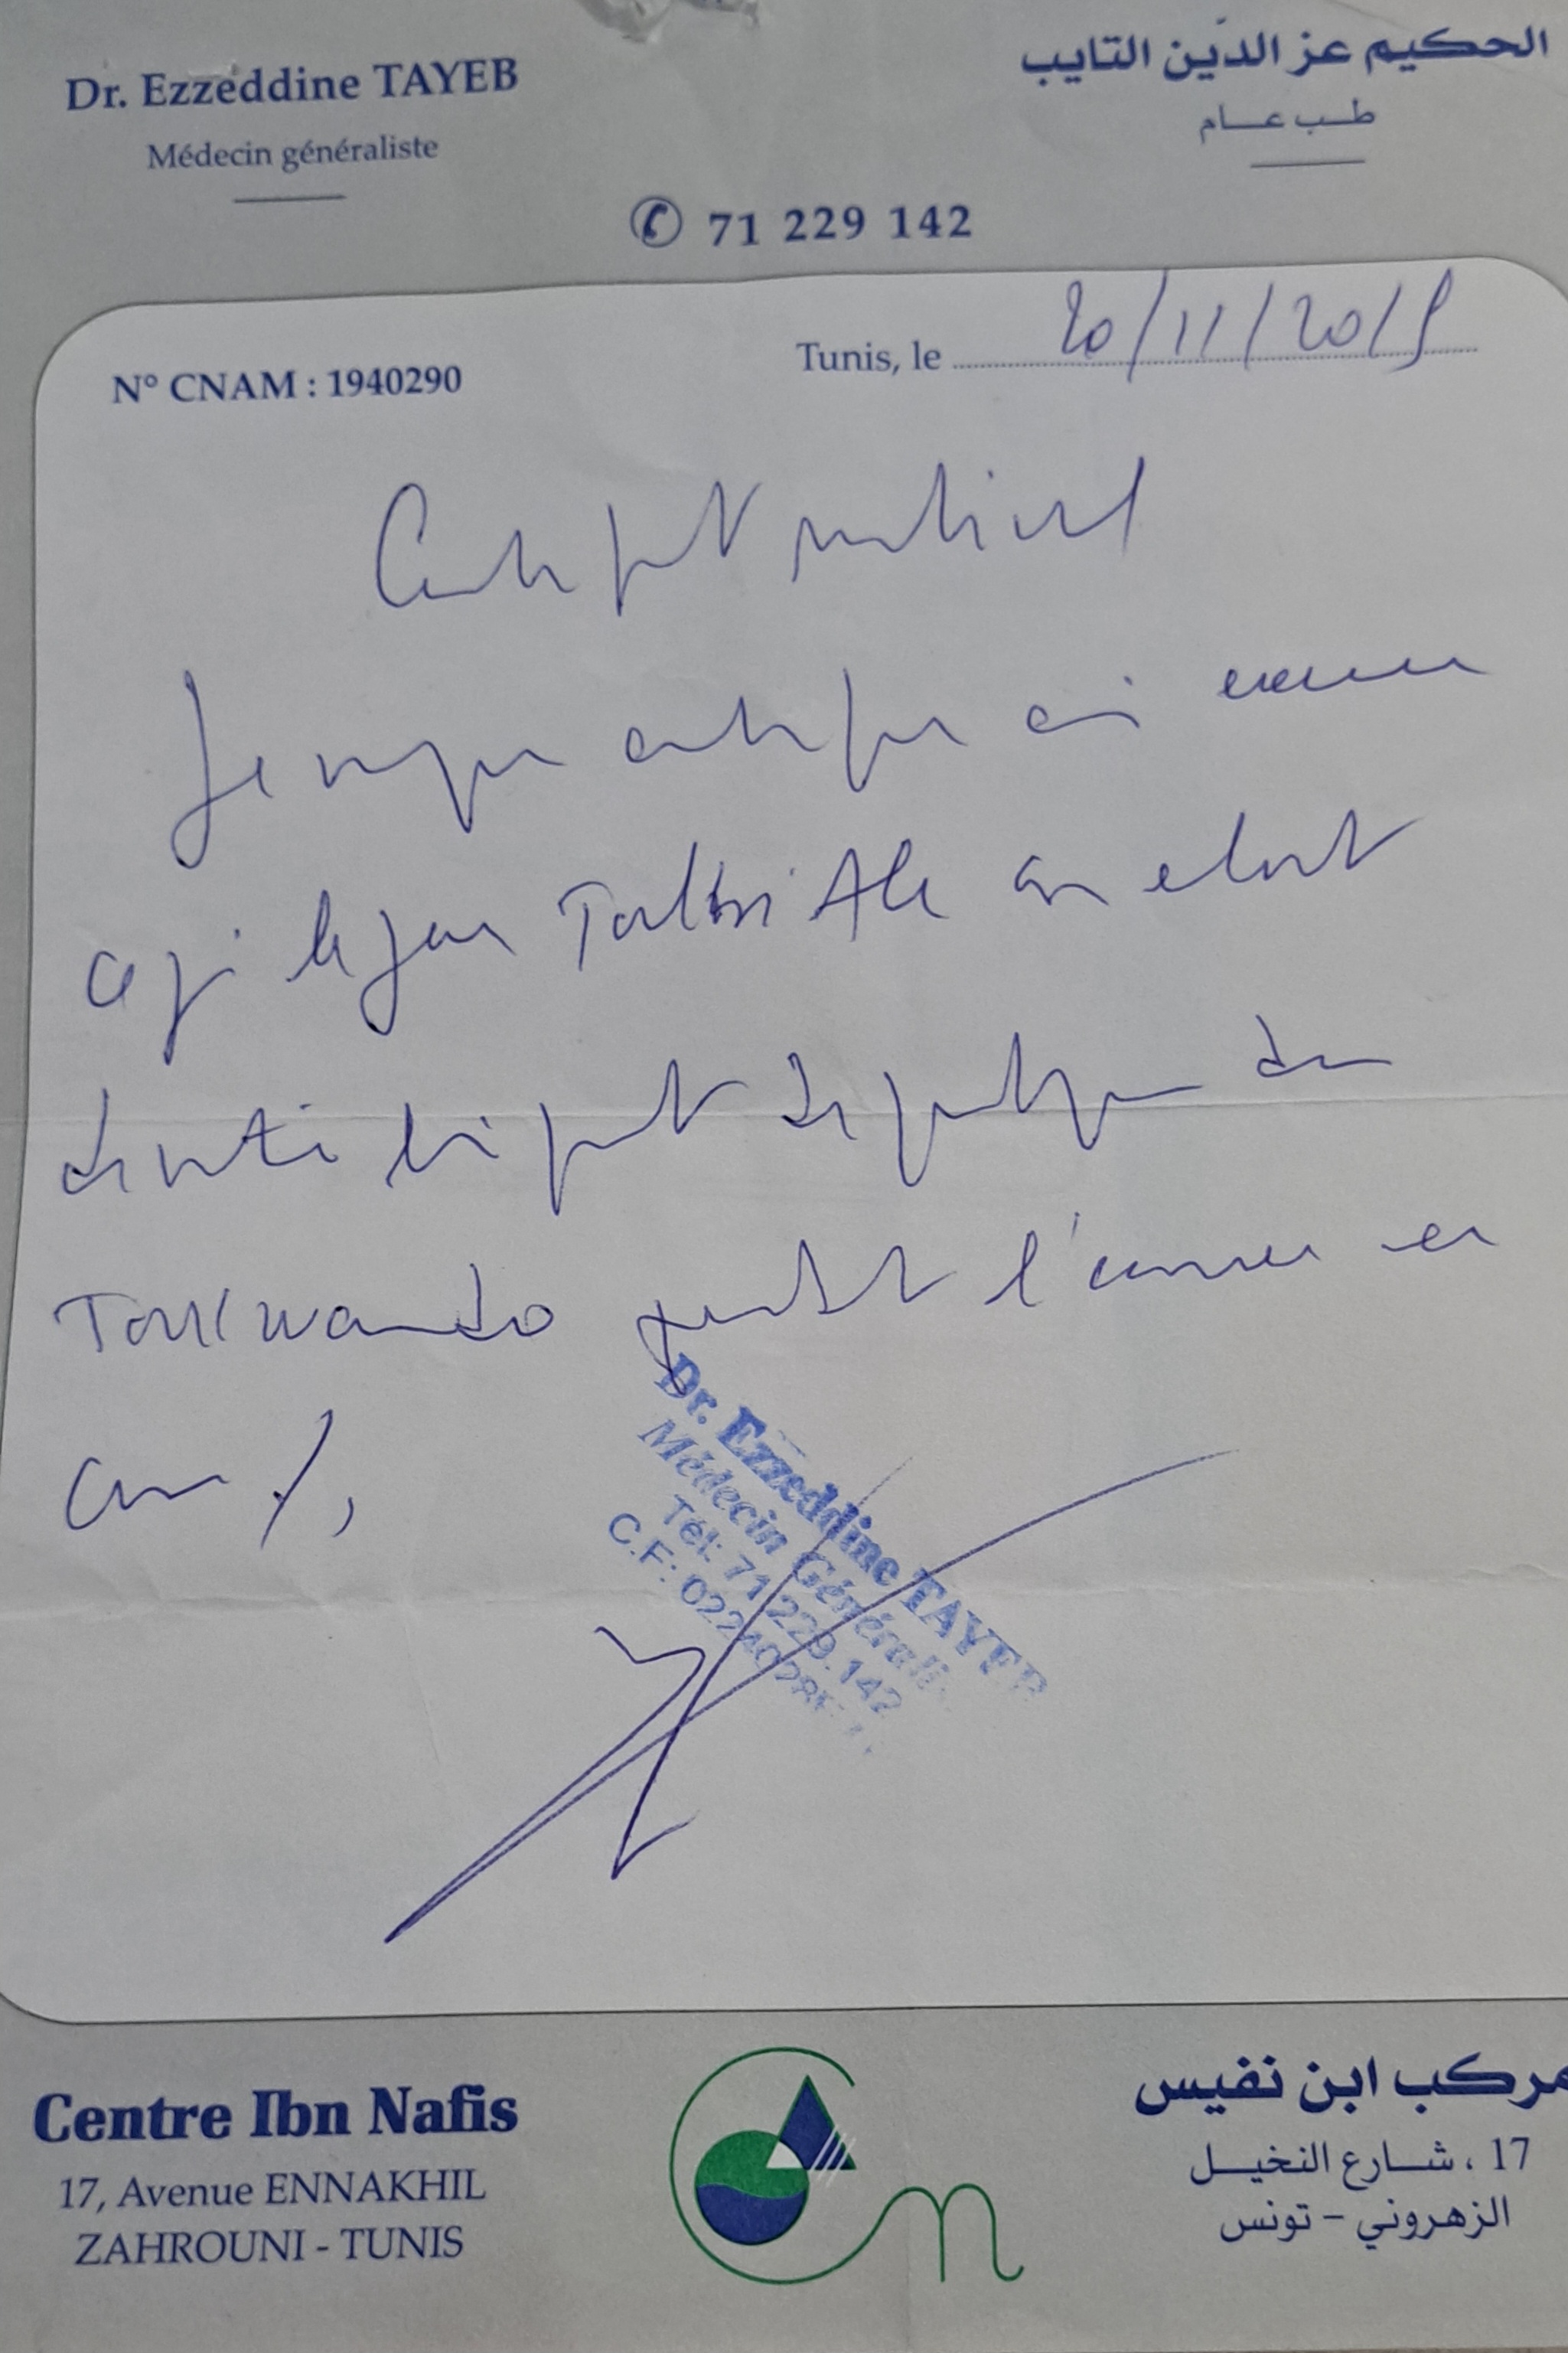 Dr. Ezzeddine TAYEB
Médecin généraliste
الحكيم عز الدين التايب
طب عام
71 229 142
N° CNAM : 1940290
Tunis, le 20/11/2019
Certificat médical
Je soussigné certifie avoir examiné
ce jour le jeune Ala
son état
de santé lui permet de pratiquer du
Taekwando pendant l'année en
cours
Dr. Ezzeddine TAYEB
Médecin Généraliste
Tél: 71 229.142
C.F:
Centre Ibn Nafis
17, Avenue ENNAKHIL
ZAHROUNI - TUNIS
مركب ابن نفيس
17 ، شارع النخيل
الزهروني - تونس